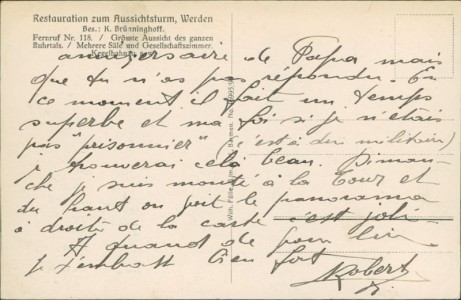 Restauration zum Aussichtsturm, Werden
Bes.: K. Brünninghoff.
Fernruf Nr. 118. / Grösste Aussicht des ganzen
Ruhrtals. / Mehrere Säle und Gesellschaftszimmer.
Kegelbahn
anniversaire de Papa mais
que tu n'as pas répondu. En
ce moment il fait un temps
superbe et ma foi si je n'étais
pas "prisonnier" (c'est à dire militaire)
je trouverai cela beau. Diman-
che je suis monté à la tour et
du haut on voit le panorama
à droite de la carte c'est joli.
A quand de
je t'embrasse bien fort
Robert
Wilh. Fülle, Barmen No.